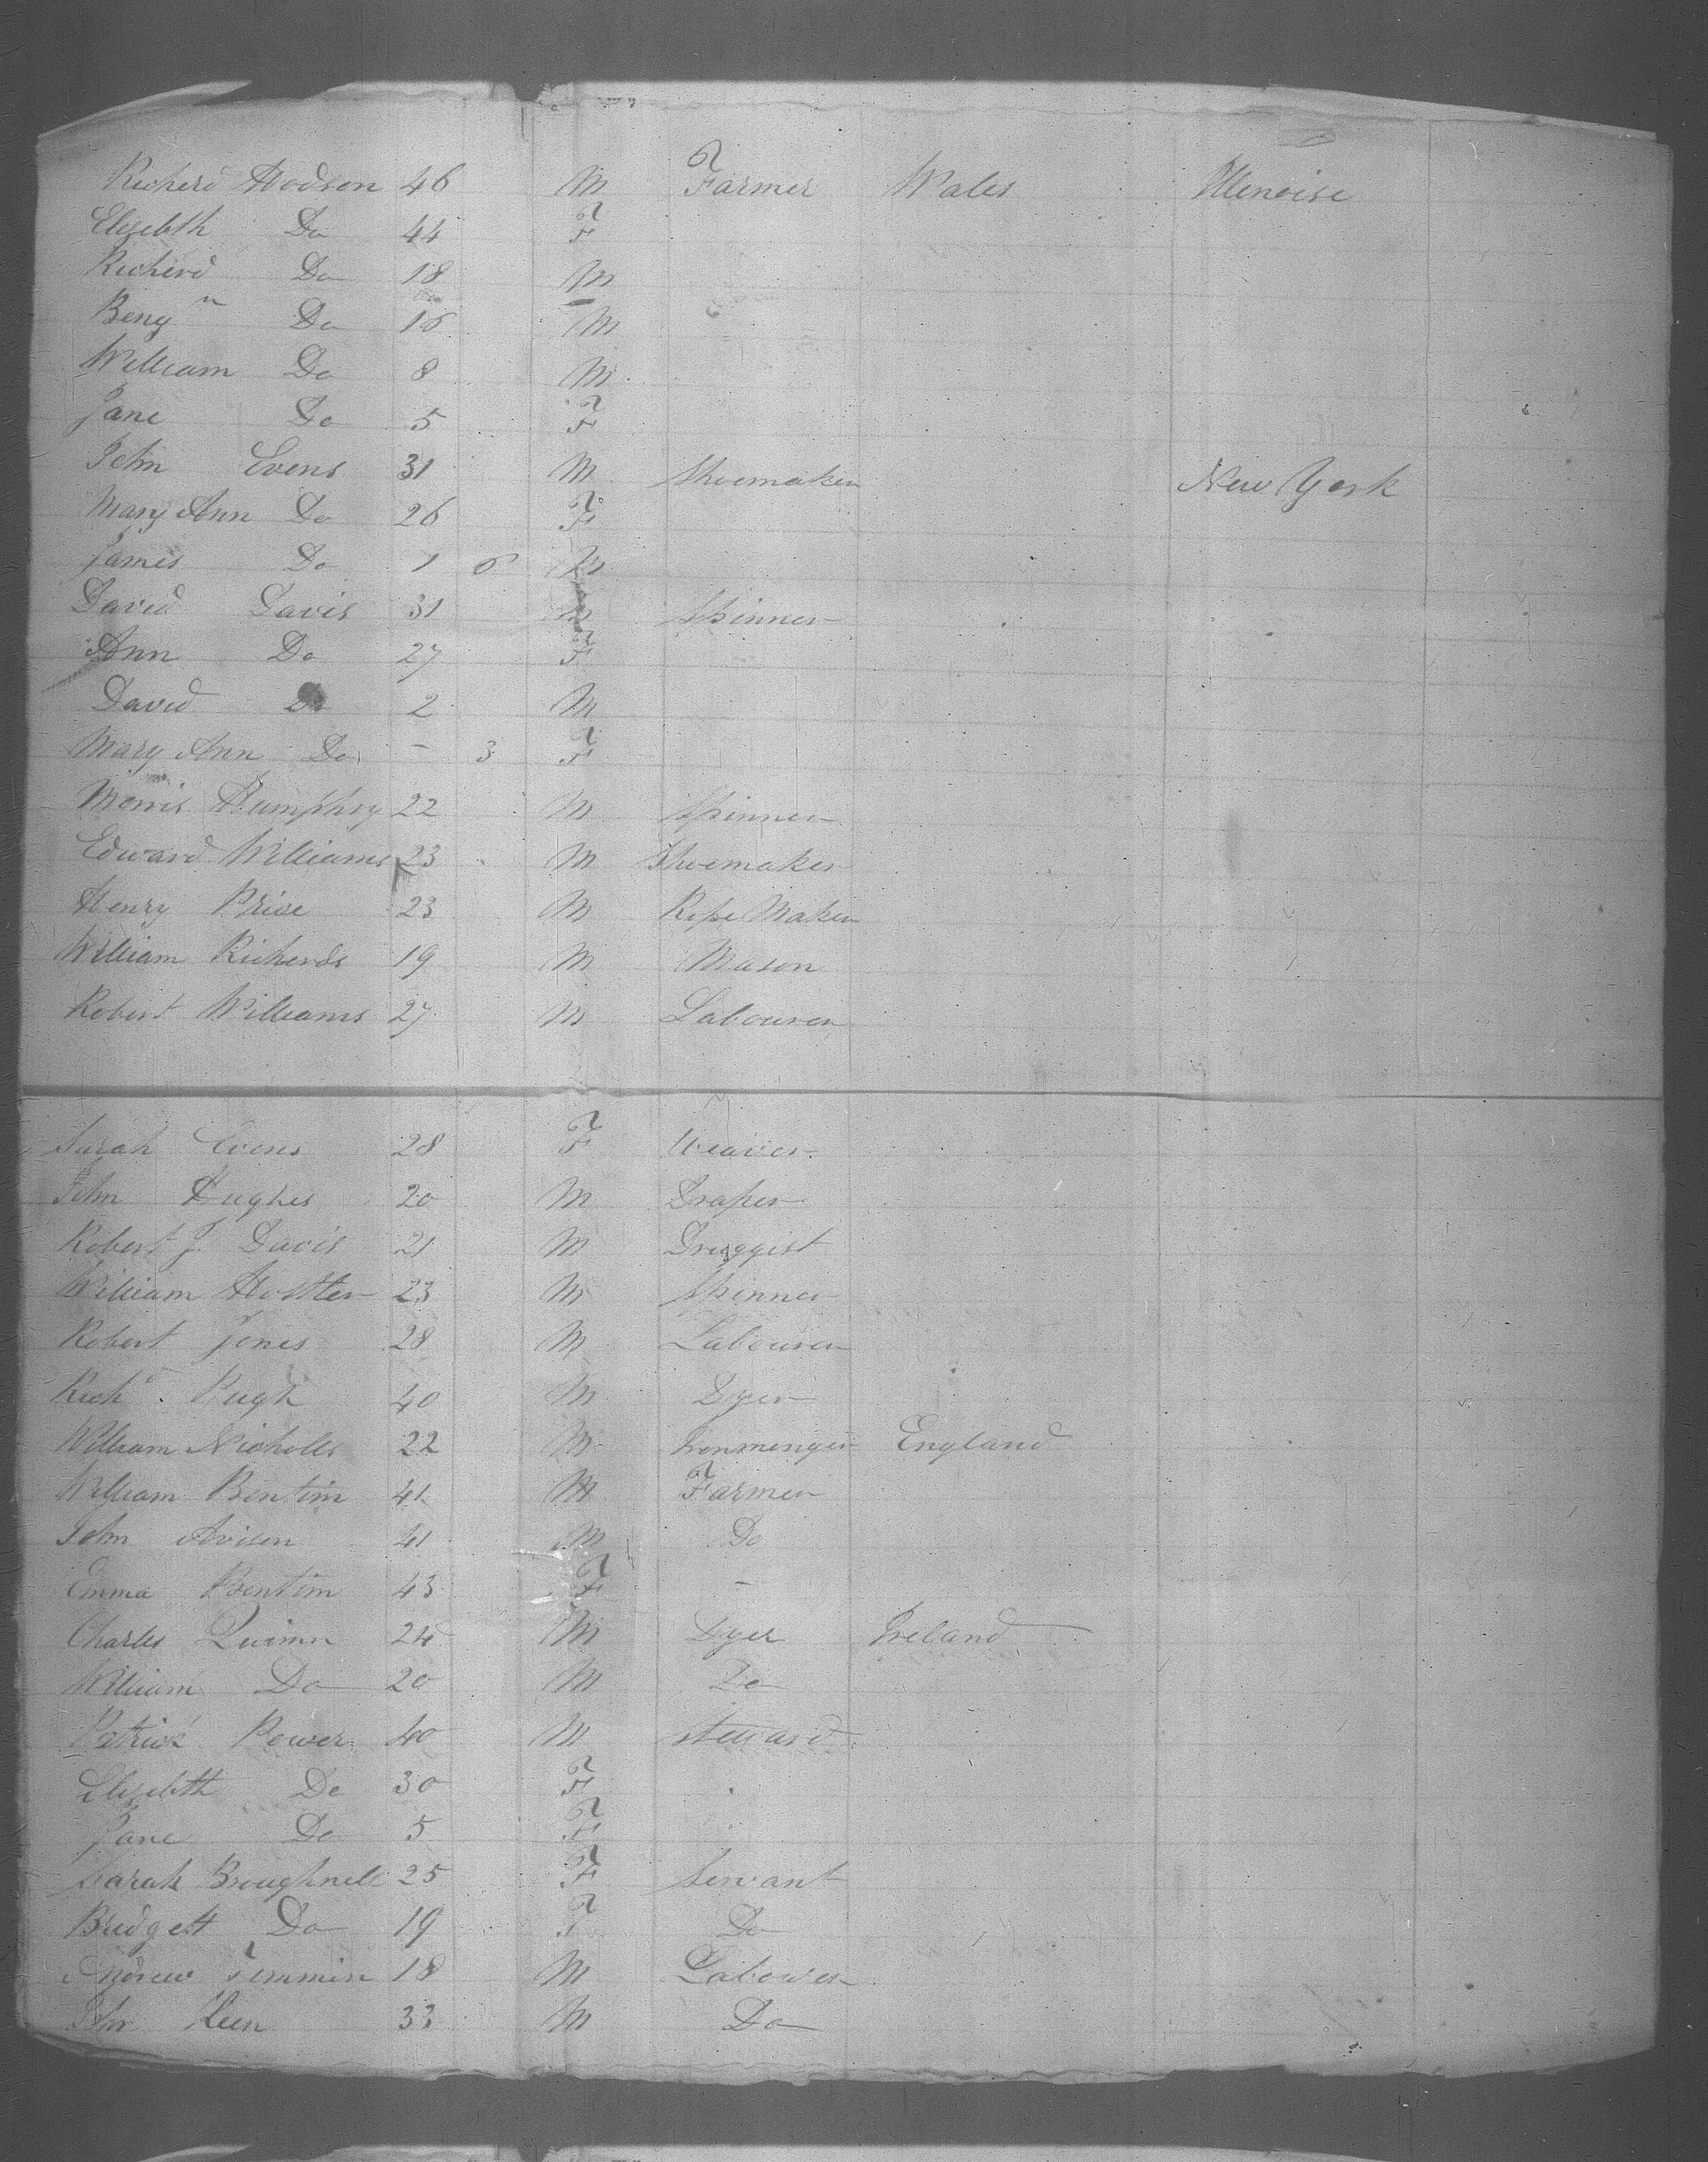 Richerd Hodson 46 M Farmer Wales Illenoise
Elisebth Do 44 F
Richerd Do 18 M
Benjn Do 16 M
William Do 8 M
Jane Do 5 F
John Evens 31 M Shoemaker New York
Mary Ann Do 26 F
James Do 1 6 M
David Davis 31 M Spinner
Ann Do 27 F
David Do 2 M
Mary Ann Do - 3 F
Morris Humphry 22 M Spinner
Edward Williams 23 M Shoemaker
Henry Price 23 M Rope Maker
William Richerds 19 M Mason
Robert Williams 27 M Labourer
Sarah Evens 28 F Weaver
John Hughes 20 M Draper
Robert J. Davis 21 M Druggist
William 23 M Spinner
Robert Jones 28 M Labourer
Richd. Pugh 40 M Dyer
William Nicholls 22 M Ironmenger England
William Bentim 41 M Farmer
John Avison 41 M Do
Emma Bentim 43 F -
Charles Quinn 24 M Dyer Ireland
William Do 20 M Do
Patrick Power 40 M Steward
Elisebth Do 30 F
Jane Do 5 F
Sarah 25 F Servant
Bridgett Do 19 F Do
Andrew 18 M Labourer
John Keen 33 M Do